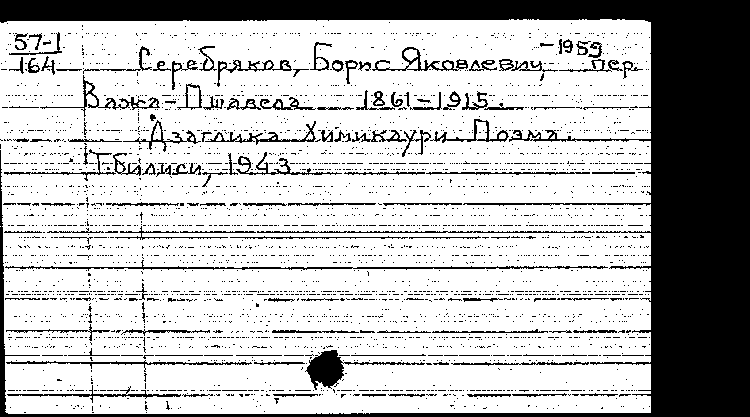 57-1
164
Серебряков, Борис Яковлевич, -1959 пер.
Важа-Пшавела 1861-1915.
Дзаглика Химикаури. Поэма.
Тбилиси, 1943.